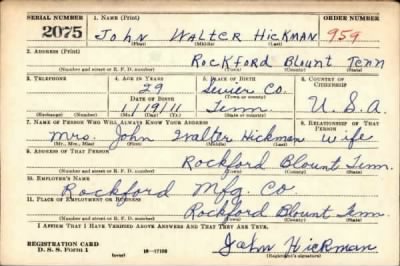 SERIAL NUMBER 1. NAME (Print) ORDER NUMBER
2075 John Walter Hickman 959
(First) (Middle) (Last)
2. ADDRESS (Print)
Rockford Blount Tenn
(Number and street or R. F. D. number) (Town) (County) (State)
3. TELEPHONE 4. AGE IN YEARS 5. PLACE OF BIRTH 6. COUNTRY OF CITIZENSHIP
29 Sevier Co.
DATE OF BIRTH (Town or county)
1/19/11 Tenn. U.S.A
(Exchange) (Number) (Mo.) (Day) (Yr.) (State or country)
7. NAME OF PERSON WHO WILL ALWAYS KNOW YOUR ADDRESS 8. RELATIONSHIP OF THAT PERSON
Mrs. John Walter Hickman Wife
(Mr., Mrs., Miss) (First) (Middle) (Last)
9. ADDRESS OF THAT PERSON
Rockford Blount Tenn.
(Number and street or R. F. D. number) (Town) (County) (State)
10. EMPLOYER'S NAME
Rockford Mfg. Co
11. PLACE OF EMPLOYMENT OR BUSINESS
Rockford Blount Tenn.
(Number and street or R. F. D. number) (Town) (County) (State)
I AFFIRM THAT I HAVE VERIFIED ABOVE ANSWERS AND THAT THEY ARE TRUE.
John Hickman
REGISTRATION CARD
D. S. S. Form 1 (over) (Registrant's signature)